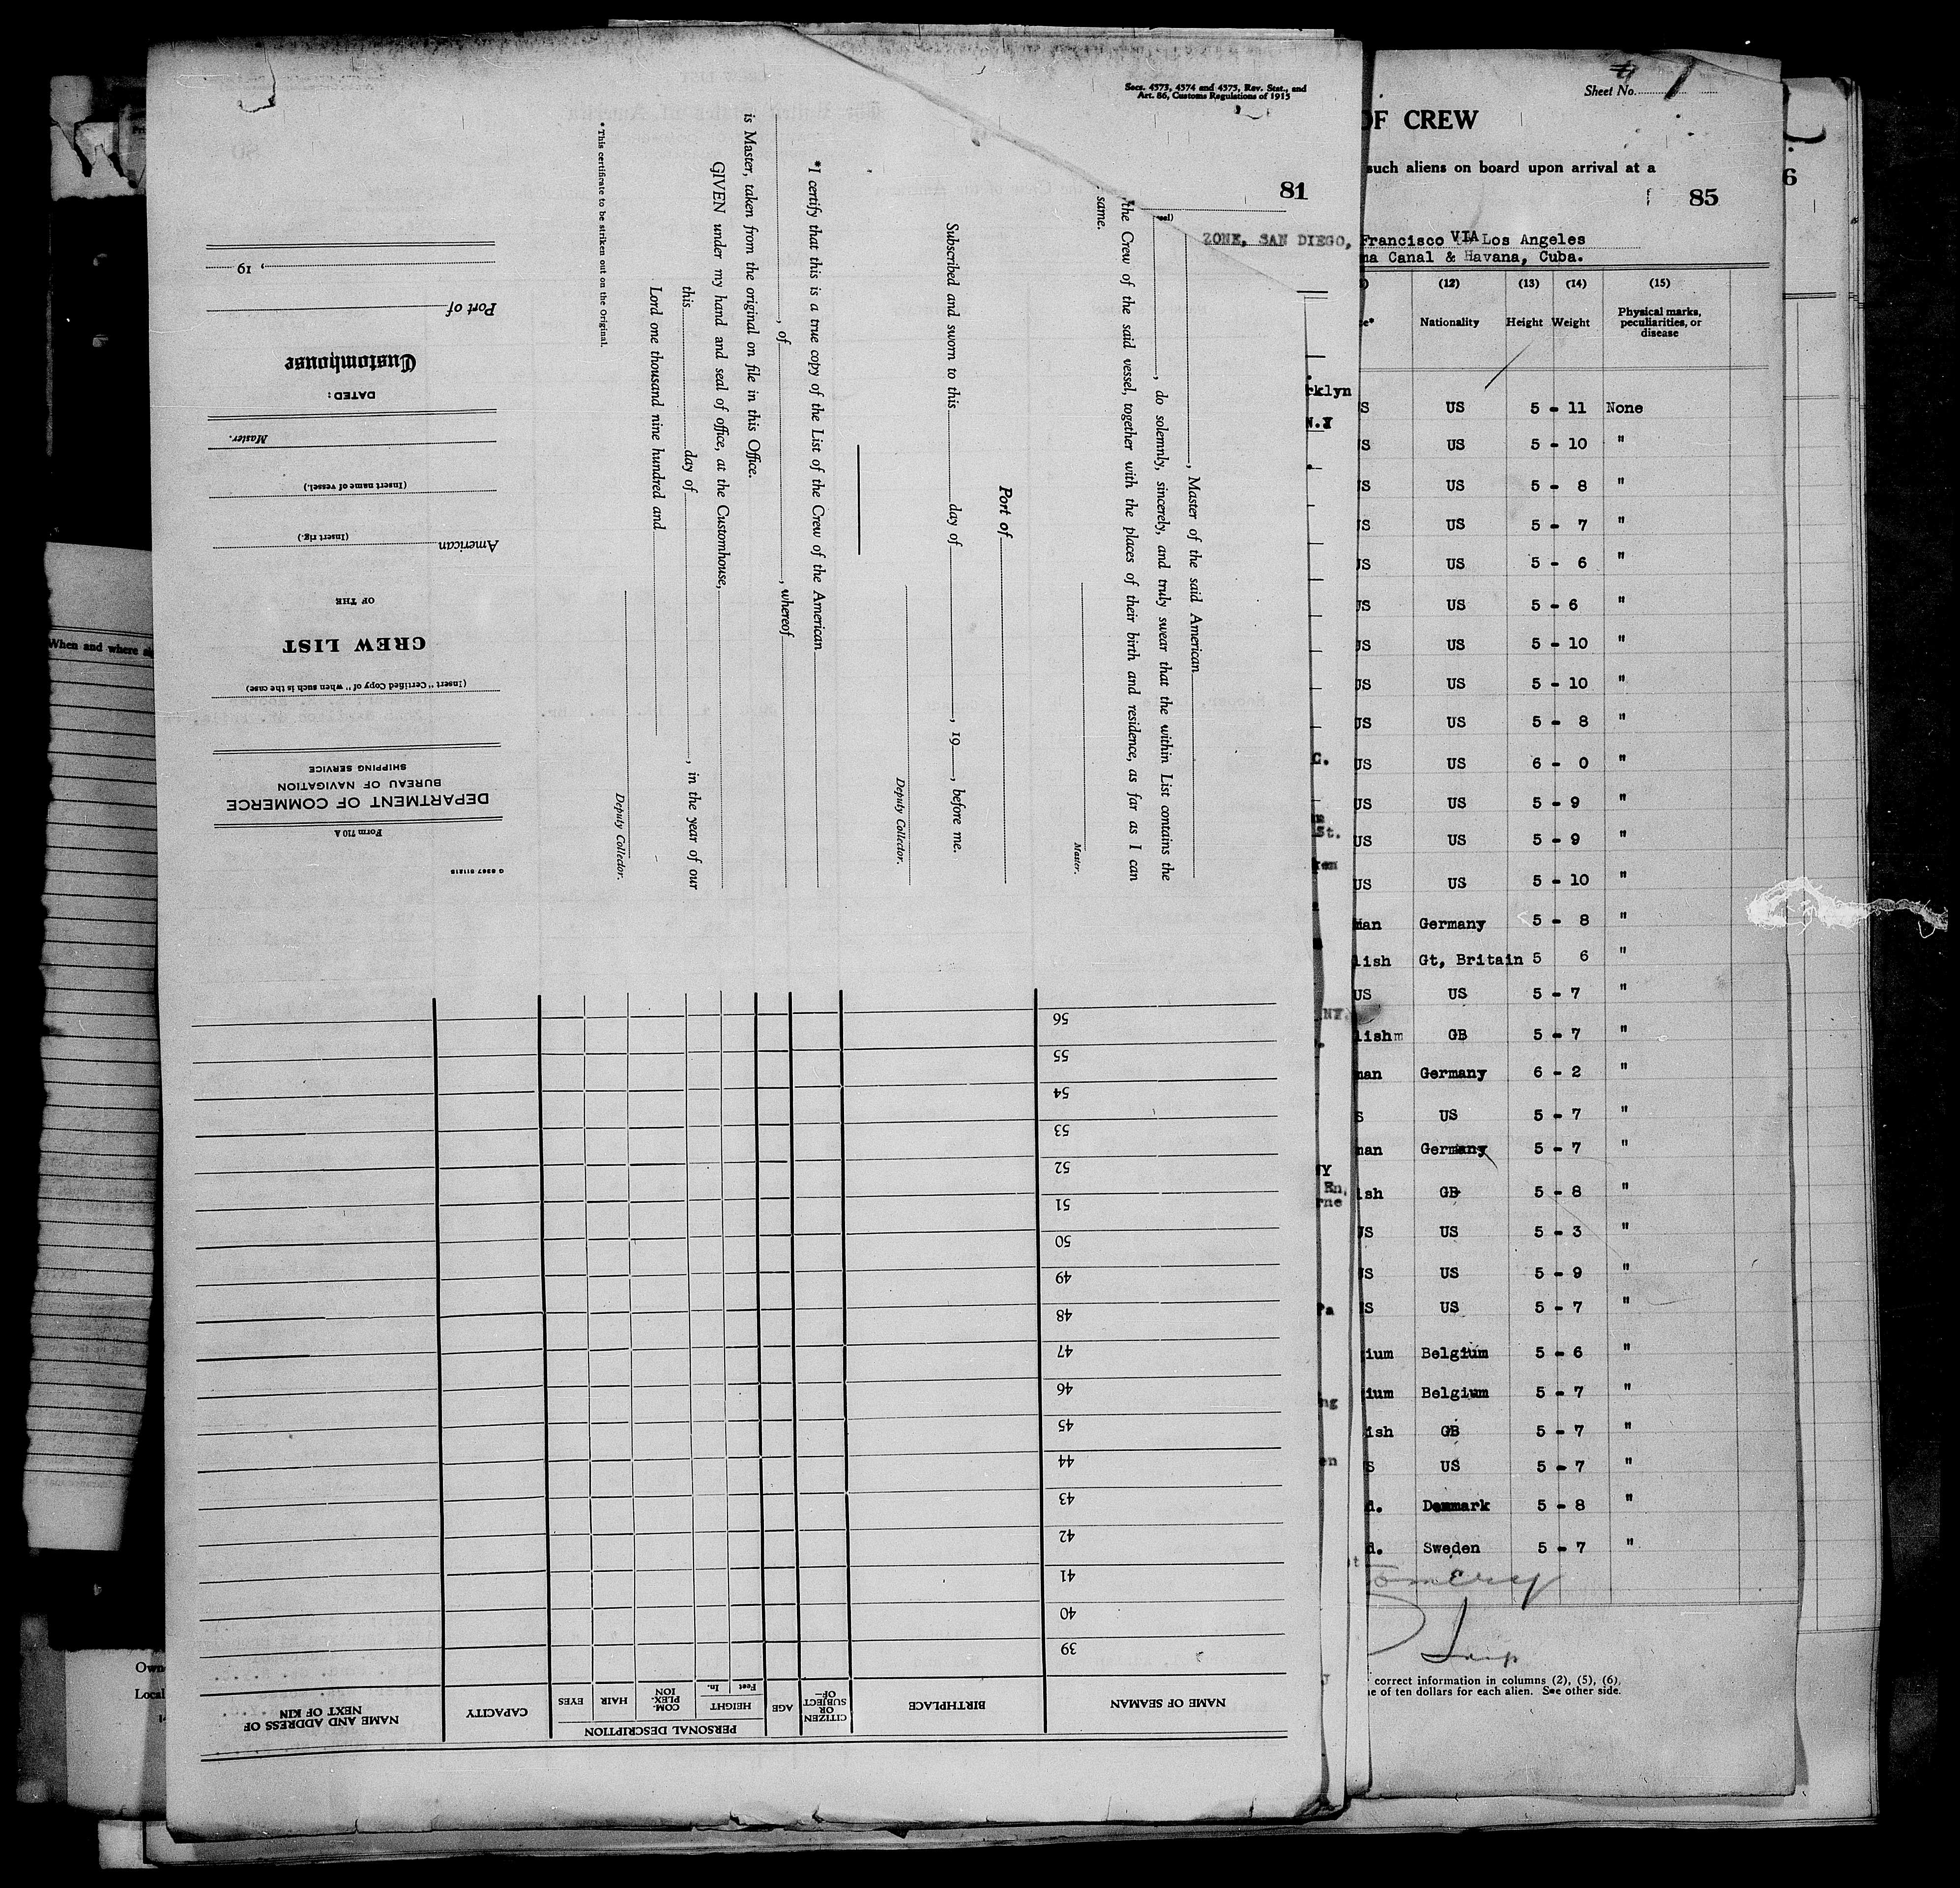 Secs. 4573, 4574 and 4575, Rev. Stat., and
Art. 86, Customs Regulations of 1915
81
ZONE, SAN DIEGO,
, Master of the said American
, do solemnly, sincerely, and truly swear that the within List contains the
the Crew of the said vessel, together with the places of their birth and residence, as far as I can
same.
Master.
Port of
Subscribed and sworn to this day of , 19 , before me.
Deputy Collector.
*I certify that this is a true copy of the List of the Crew of the American
, of , whereof
is Master, taken from the original on file in this Office.
GIVEN under my hand and seal of office, at the Customhouse,
this day of , in the year of our
Lord one thousand nine hundred and
Deputy Collector.
* This certificate to be striken out on the Original.
Form 710 A
DEPARTMENT OF COMMERCE
BUREAU OF NAVIGATION
SHIPPING SERVICE
(Insert "Certified Copy of" when such is the case)
CREW LIST
OF THE
American
(Insert rig.)
(Insert name of vessel.)
Master.
DATED:
Customhouse
Port of
, 19
NAME OF SEAMAN
BIRTHPLACE
CITIZEN OR SUBJECT OF—
AGE
PERSONAL DESCRIPTION
HEIGHT
Feet In.
COM-PLEX-ION
HAIR
EYES
CAPACITY
NAME AND ADDRESS OF NEXT OF KIN
39
40
41
42
43
44
45
46
47
48
49
50
51
52
53
54
55
56
When and where
Sheet No.
OF CREW
such aliens on board upon arrival at a
85
Francisco VIA Los Angeles
Canal & Havana, Cuba.
(12) (13) (14) (15)
Nationality Height Weight Physical marks, peculiarities, or disease
US 5 - 11 None
US 5 - 10 "
US 5 - 8 "
US 5 - 7 "
US 5 - 6 "
US 5 - 6 "
US 5 - 10 "
US 5 - 10 "
US 5 - 8 "
US 6 - 0 "
US 5 - 9 "
US 5 - 9 "
US 5 - 10 "
Germany 5 - 8 "
Gt, Britain 5 6 "
US 5 - 7 "
GB 5 - 7 "
Germany 6 - 2 "
US 5 - 7 "
Germany 5 - 7 "
GB 5 - 8 "
US 5 - 3 "
US 5 - 9 "
US 5 - 7 "
Belgium 5 - 6 "
Belgium 5 - 7 "
GB 5 - 7 "
US 5 - 7 "
Denmark 5 - 8 "
Sweden 5 - 7 "
correct information in columns (2), (5), (6),
of ten dollars for each alien. See other side.